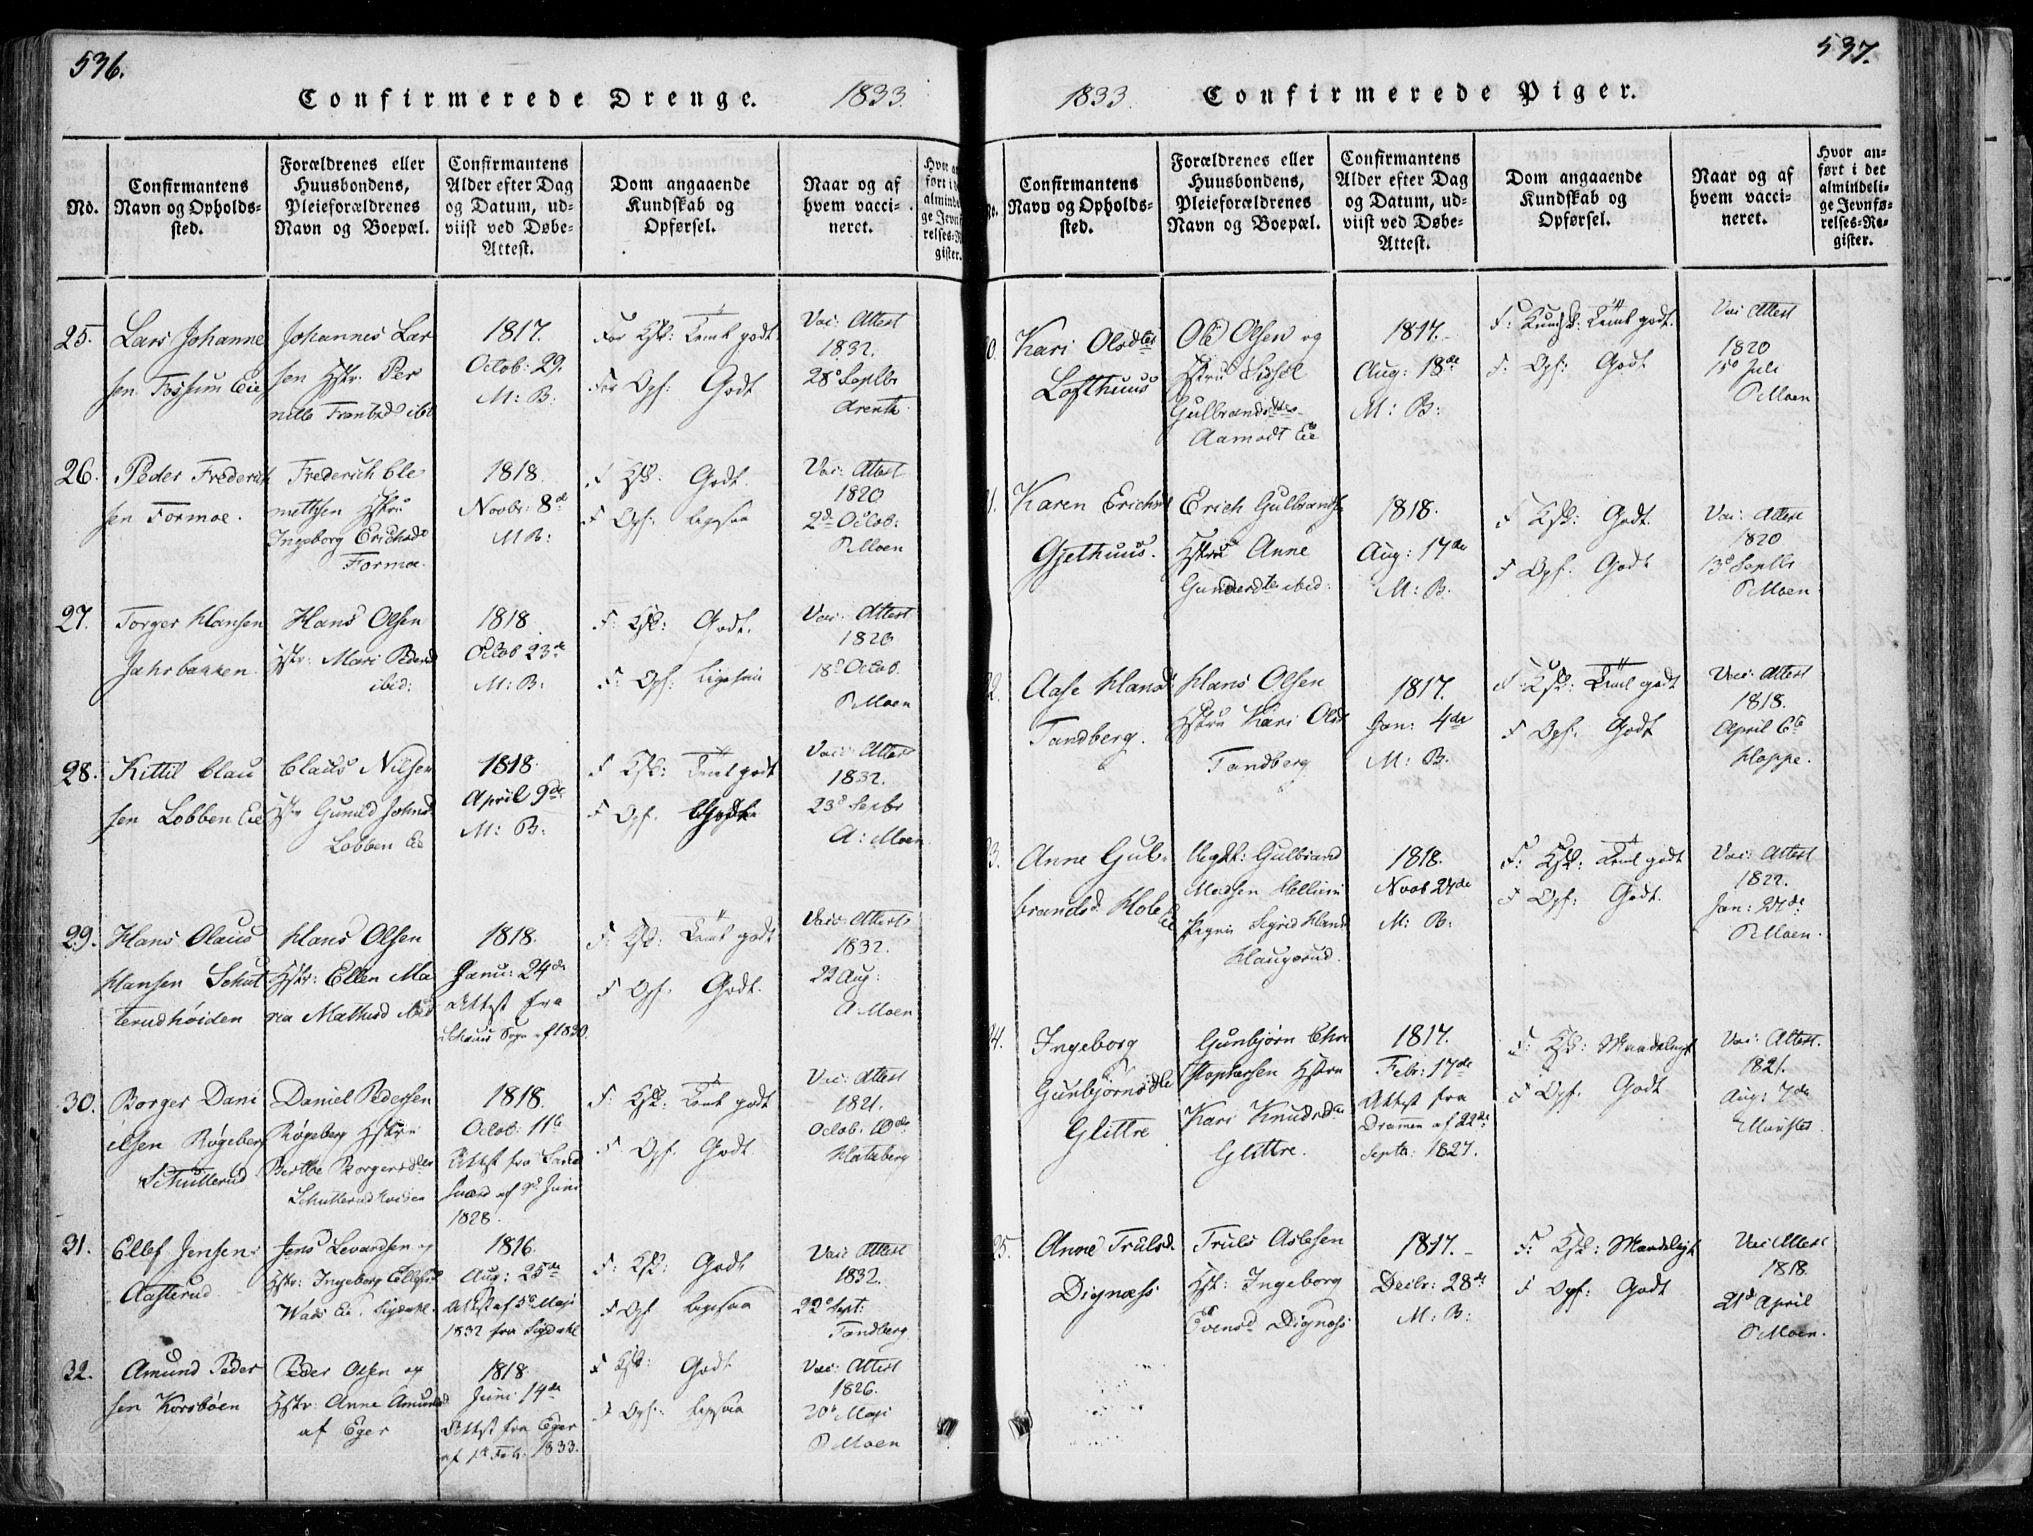 536.
Confirmerede Drenge. 1833.
No.
Confirmantens
Navn og Opholds-
sted.
Forældrenes eller
Huusbondens,
Pleieforældrenes
Navn og Boepæl.
Confirmantens
Alder efter Dag
og Datum, ud-
viist ved Døbe-
Attest.
Dom angaaende
Kundskab og
Opførsel.
Naar og af
hvem vacci-
neret.
25.
Lars Johanne
sen Fossum Eie
Johannes Lar
sen Hstr: Per
nille
1817.
Octob: 29.
M: B:
For Ksk: Teml godt
For Opf: Godt
Vac: Attest
1832.
28de Septbr
26.
Peder Frederich
sen Formoe.
Frederich Cle
mettsen Hstru
Ingeborg Erichsdr
Formoe.
1818.
Novbr: 8de
M B:
F Ksk: Godt.
F Opf: ligesaa
Vac: Attest
1820
2de Octob:
P Moen
27.
Torger Hansen
Jahrbakken.
Hans Olsen
Hstr: Mari Pedersd
ibid:
1818
Octob 23de
M: B:
F: Ksk: Godt.
F: Opf: ligesaa
Vac: Attest
1820
18de Octob.
P Moen
28.
Kittil Clau
sen Lobben Eie
Claus Nilsen
Hstr Gunild Johnsd
Lobben Eie
1818.
April 9de
M: B:
F Ksk: Teml godt
F Opf. Godt
Vac: Attest
1832.
23de
A: Moen
29.
Hans Olaus
Hansen Schut
terudhöiden
Hans Olsen
Hstr: Ellen Ma
ria Mathisd ibid
1818.
Janu: 24de
Attest fra
Sogn af 1830.
F: Ksk: Teml godt
F Opf. Godt.
Vac: Attest
1832.
22 Aug:
A Moen
30.
Borger Dani
elsen Røgeberg
Schutterud
Daniel Pedersen
Røgeberg Hstru
Berthe Borgersdtr
Schutterudhoiden
1818.
Octob: 11te
Attest fra Sand
sværd af 9de Juni
1828.
F: Ksk: Teml godt
F Opf. Godt.
Vac: Attest
1821.
Octob: 10de
Hataberg
31.
Ellef Jensen
Aasterud
Jens Levardsen og
Hstr: Ingeborg Ellefsd
Eie. Sigdahl.
1816.
Aug: 25de
Attest af 5te Maji
1832 fra Sigdahl
F: Ksk: Godt
F Opf ligesaa
Vac: Attest
1832.
22de Sept:
Tandberg
32.
Amund Peder
sen Korsbøen
Peder Olsen og
Hstr: Anne Amundsd
af Eger
1818.
Juni 14de
Attest fra Eger
af 1ste Feb: 1833.
F Ksk: Godt
F Opf: ligesaa
Vac: Attest
1826.
30te Maji
P Moen
537.
1833. Confirmerede Piger.
No.
Confirmantens
Navn og Opholds-
sted.
Forældrenes eller
Huusbondens,
Pleieforældrenes
Navn og Boepæl.
Confirmantens
Alder efter Dag
og Datum, ud-
viist ved Døbe-
Attest.
Dom angaaende
Kundskab og
Opførsel.
Naar og af
hvem vacci-
neret.
Hvor an-
ført i det
almindeli-
ge Jevnfø-
relses-Re-
gister.
Kari Olsdter
Lofthuus
Ole Olsen og
Hstru Sishel
Gulbrandsdter
Aamodt Eie
1817.
Aug: 18de
M: B:
F: Kundsk: Teml godt.
F: Opf: Godt
Vac Attest
1820
15de Juli
P Moen
Karen Erichsd
Gjethuus.
Erich Gulbrands
Hstru Anne
ibid:
1818.
Aug: 17de
M: B:
F Ksk: Godt.
F Opf. Godt
Vac: Attest
1820
13de Septbr
P Moen
Aase Hansd
Tandberg.
Hans Olsen
Hstru Kari Olsd
Tandberg
1817.
Jan: 4de
M: B:
F: Ksk: Teml godt
F Opf. Godt
Vac: Attest
1818.
April 6te
Hoppe.
Anne Gul-
brandsd. Hole Eie
Ungk: Gulbrand
Madsen Mellum
Pigen Sigrid Hansd
Haugerud.
1818.
Novb 27de
M: B:
F: Ksk: Teml godt
F Opf: Godt.
Vac: Attest
1822.
Jan: 27de
P Moen.
Ingeborg
Gunbjørnsdtr
Glittre
Gunbjørn Chri
stophersen Hstru
Kari Knudsdtr
Glittre.
1817.
Febr: 17de
Attest fra
Dramen af 22de
Septb: 1827.
F: Ksk: Maadeligt
F Opf. Godt
Vac: Attest.
1821.
Aug: 7de
Anne Trulsd.
Dignæss
Truls Aslesen
Hst: Ingeborg
Evensd Dignæss
1817.
Decbr: 28de
M: B:
F: Ksk: Maadeligt
F Opf: Godt
Vac Attest
1818
21de April
P Moen.